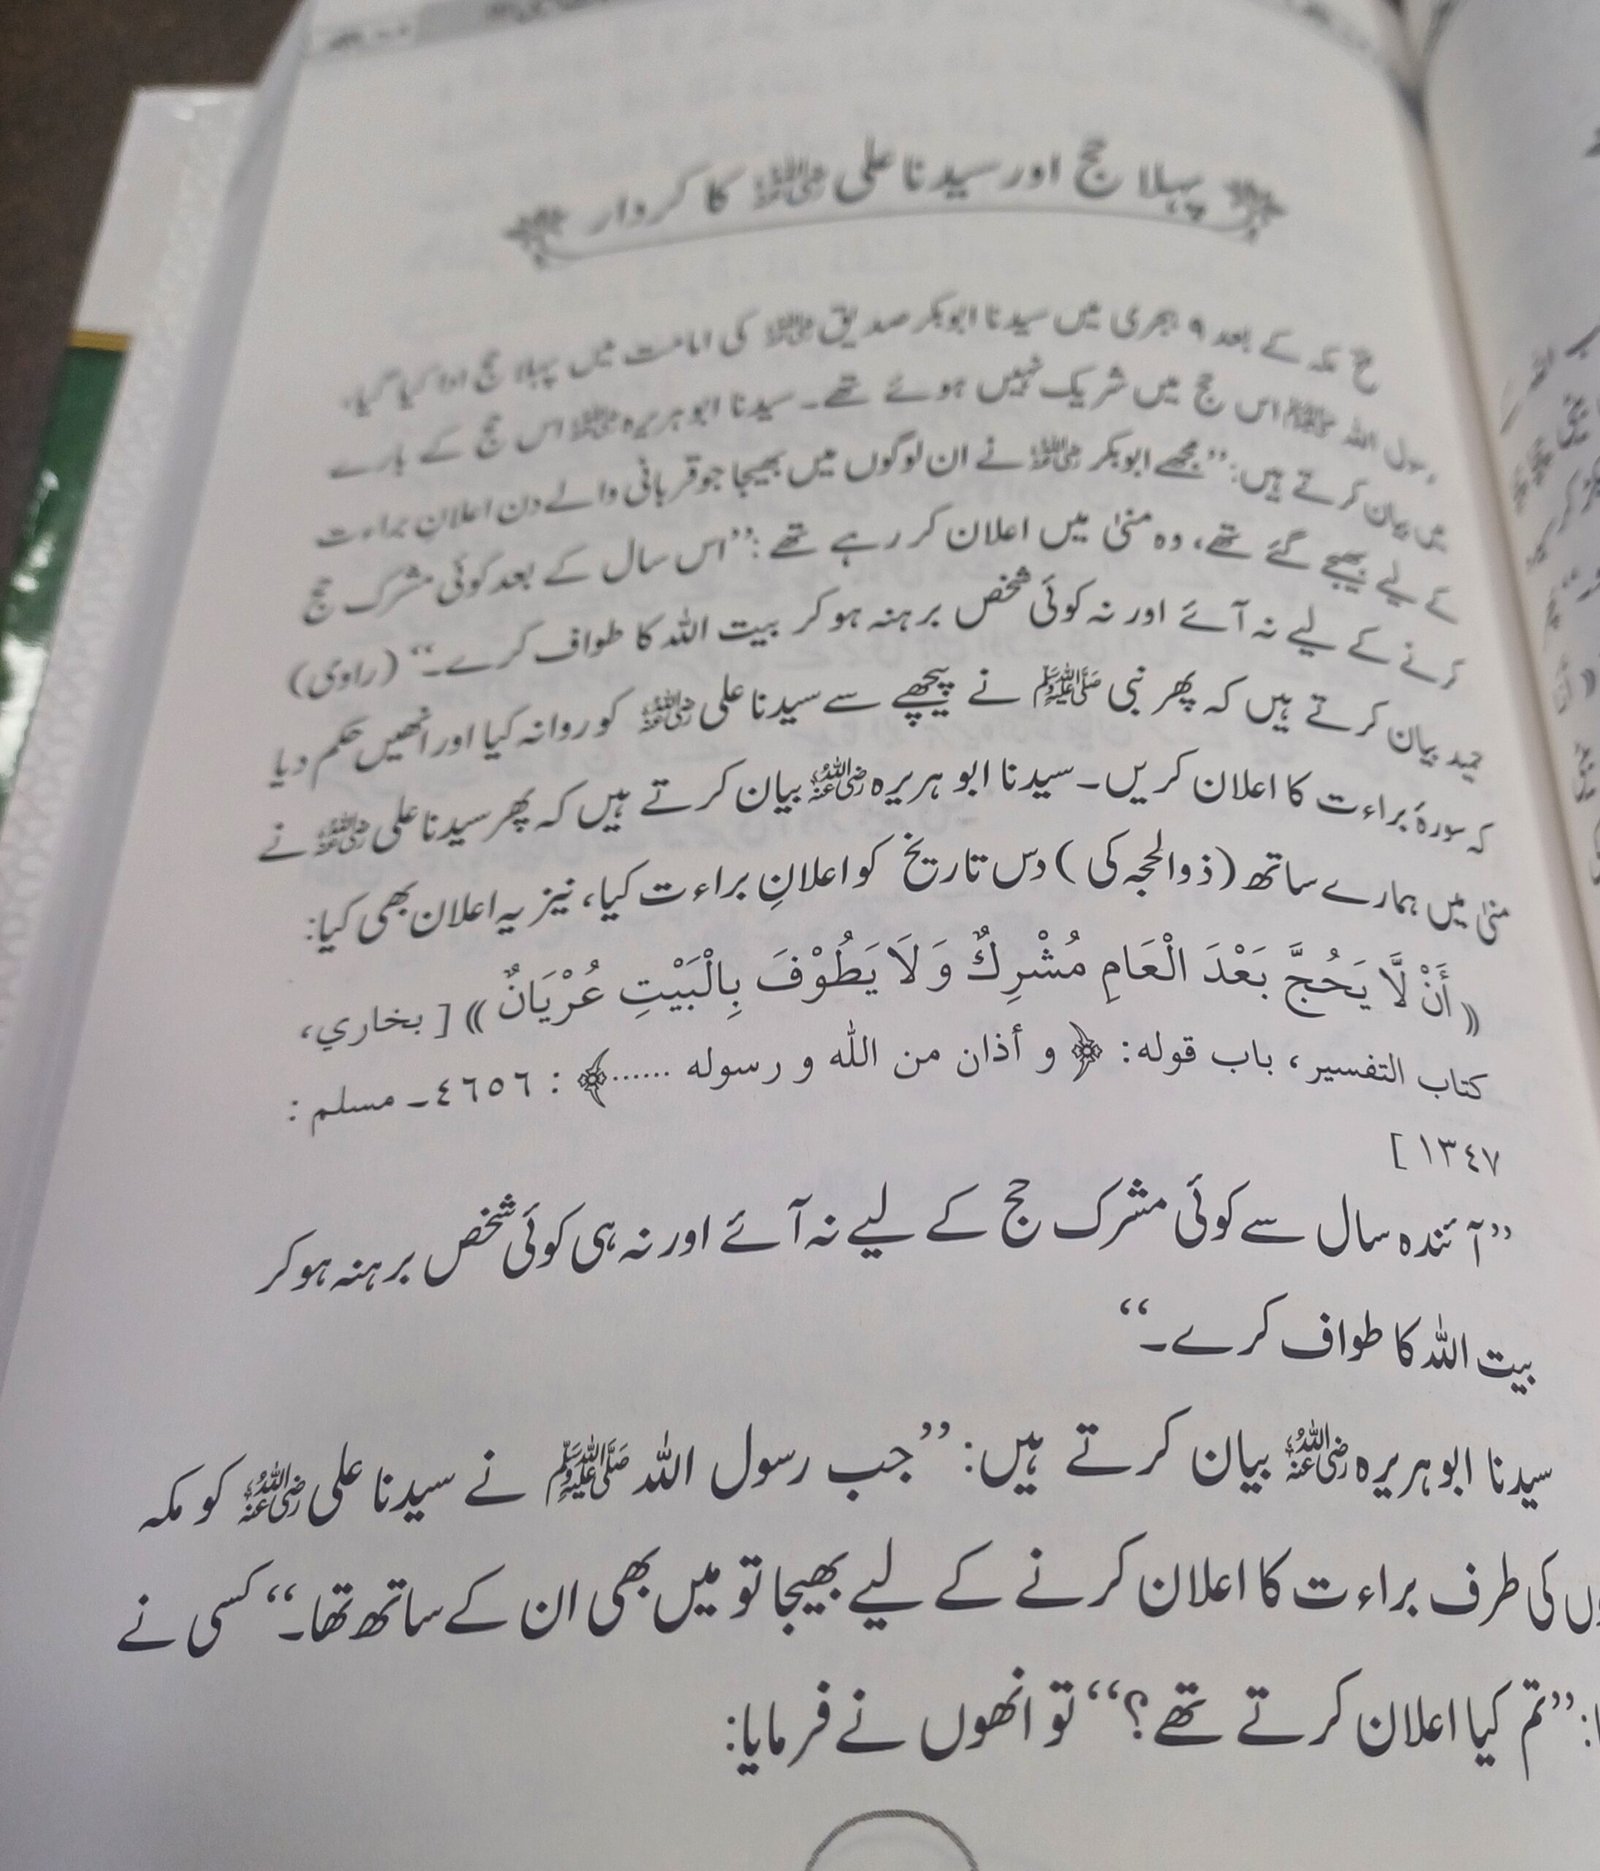 پہلا حج اور سیدنا علی رضی اللہ عنہ کا کردار
فتح مکہ کے بعد ۹ ہجری میں سیدنا ابوبکر صدیق رضی اللہ عنہ کی امامت میں پہلا حج ادا کیا گیا،
رسول اللہ ﷺ اس حج میں شریک نہیں ہوئے تھے۔ سیدنا ابوہریرہ رضی اللہ عنہ اس حج کے بارے
میں بیان کرتے ہیں: ’’مجھے ابوبکر رضی اللہ عنہ نے ان لوگوں میں بھیجا جو قربانی والے دن اعلانِ براءت
کے لیے بھیجے گئے تھے، وہ منیٰ میں اعلان کر رہے تھے: ’’اس سال کے بعد کوئی مشرک حج
کرنے کے لیے نہ آئے اور نہ کوئی شخص برہنہ ہو کر بیت اللہ کا طواف کرے۔‘‘ (راوی)
حمید بیان کرتے ہیں کہ پھر نبی ﷺ نے پیچھے سے سیدنا علی رضی اللہ عنہ کو روانہ کیا اور انھیں حکم دیا
کہ سورۂ براءت کا اعلان کریں۔ سیدنا ابو ہریرہ رضی اللہ عنہ بیان کرتے ہیں کہ پھر سیدنا علی رضی اللہ عنہ نے
منیٰ میں ہمارے ساتھ (ذوالحجہ کی) دس تاریخ کو اعلانِ براءت کیا، نیز یہ اعلان بھی کیا:
(( أَنْ لَّا يَحُجَّ بَعْدَ الْعَامِ مُشْرِكٌ وَ لَا يَطُوْفَ بِالْبَيْتِ عُرْيَانٌ )) [ بخاري،
كتاب التفسير، باب قوله: ﴿ و أذان من الله و رسوله ......﴾ : ٤٦٥٦ـ مسلم :
١٣٤٧ ]
’’آئندہ سال سے کوئی مشرک حج کے لیے نہ آئے اور نہ ہی کوئی شخص برہنہ ہو کر
بیت اللہ کا طواف کرے۔‘‘
سیدنا ابوہریرہ رضی اللہ عنہ بیان کرتے ہیں: ’’جب رسول اللہ ﷺ نے سیدنا علی رضی اللہ عنہ کو مکہ
کی طرف براءت کا اعلان کرنے کے لیے بھیجا تو میں بھی ان کے ساتھ تھا۔‘‘ کسی نے
: ’’تم کیا اعلان کرتے تھے؟‘‘ تو انھوں نے فرمایا: